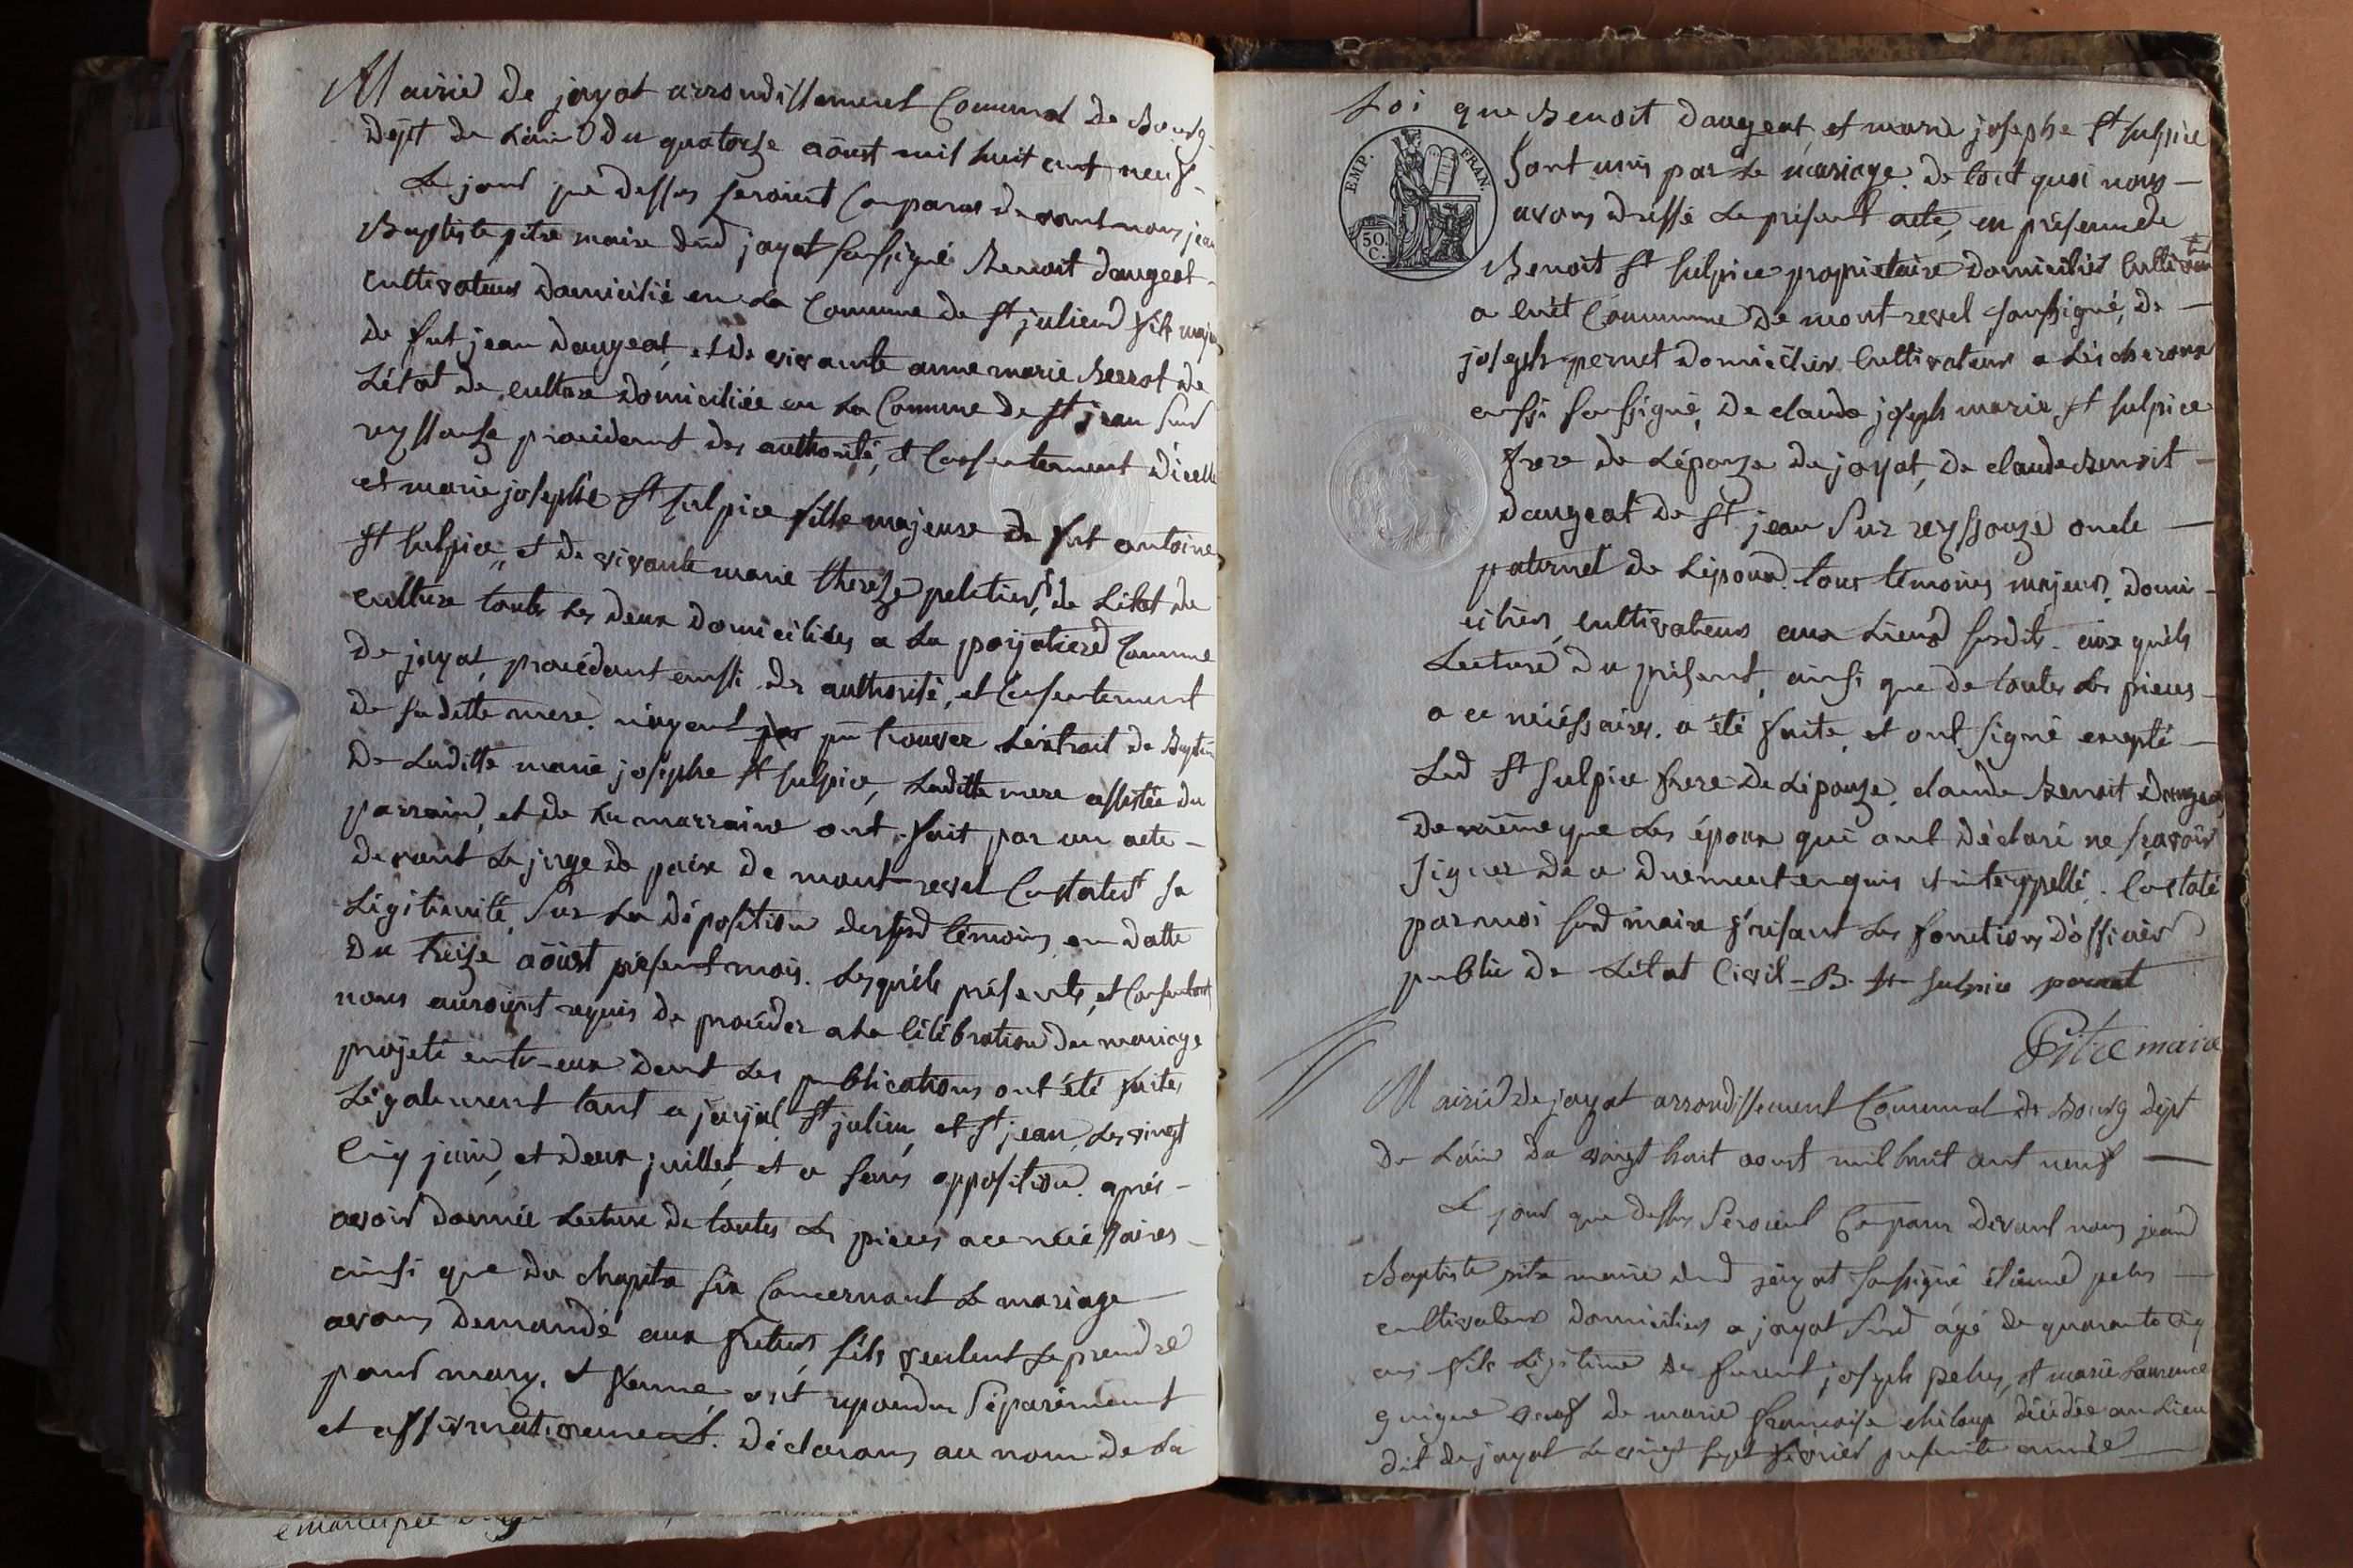 Mairie De jayat arrondissement Communal De Bourg
Dept de L'ain Du quatorze aôust mil huit cent neuf
Le jour que dessus seroient Comparus devant nous jean
Baptiste pitre maire dud jayat soussigné Benoit daugeat
cultivateur domicilié en La Commune de St julien fils majeur
de fut jean daugeat, et de vivante anne marie Berrot de
L'état de culture domiciliée en La Commune de St jean sur
reyssouze procédant des authorité, et Consentement d'icelle
et marie josephe St sulpice fille majeure de fut antoine
St sulpice, et de vivante marie thereze peletier, de L'état de
culture toutes les deux domiciliées a La Commune
De jayat, procédant aussi des authorité, et Consentement
De saditte mere. n'ayent pas pû trouver L'éxtrait de Baptême
De Laditte marie josephe St sulpice, Laditte mere assistée du
parrain, et de La marraine ont fait par un acte
devant Le juge de paix de mont-revel Constater sa
Légitimité, Sur La déposition desusd témoins, en datte
Du treize aôust présent mois. Lesquels présents, et Consentant
nous auroient requis de procéder a La Célébration du mariage
projeté entr-eux dont Les publications ont été faites
Légalement tant a jayat, St julien, et St jean, Les vingt
Cinq juin, et deux juillet, et a sans opposition. aprés
avoir donnée Lecture de toutes Les pieces a ce nécéssaires
ainsi que du chapitre six Concernant Le mariage
avons demandé aux futurs, s'ils veulent se prendre
pour mary, et femme, ont repondu Séparément
et affirmativement. déclarons au nom de La
Loi que Benoit daugeat, et marie josephe St sulpice
EMP. FRAN.
50. C.
Sont unis par Le mariage. de tout quoi nous
avons dressé Le présent acte, en présence de
Benoit St sulpice propriétaire domicilié Cultivateur
a Commune De mont-revel soussigné, de
joseph pernet domicilié Cultivateur a Léscheroux
aussi soussigné, De claude joseph marie St sulpice
frere de L'épouze de jayat, De claude Benoit
daugeat de St jean sur reyssouze oncle
paternel de L'époux. tous témoins majeurs. domi
ciliés, cultivateurs aux Lieux susdits. aux quels
Lecture du présent, ainsi que de toutes Les pieces
a ce nécéssaires. a été faite, et ont signé excepté
Led St sulpice frere de L'épouze, claude Benoit daugeat,
De même que Les époux qui ont déclaré ne sçavoir
signer de ce duement enquis et interppellé. Constaté
par moi susd maire faisant Les fonctions d'officier
public de L'état Civil - B. St Sulpice pernet
Pitre maire
Mairie de jayat arrondissement Communal de Bourg dépt
De L'ain Du vingt huit aoust mil huit cent neuf
Le jour que dessus Seroient Comparu devant nous jean
Baptiste pitre maire dud jayat soussigné étienne pelus
cultivateur domicilié a jayat susd agé de quarante cinq
ans fils Légitime de furent joseph pelus, et marie Laurence
guigue veuf de marie françoise chiloup décédée au Lieu
dit de jayat Le vingt sept février présente année
emancipée